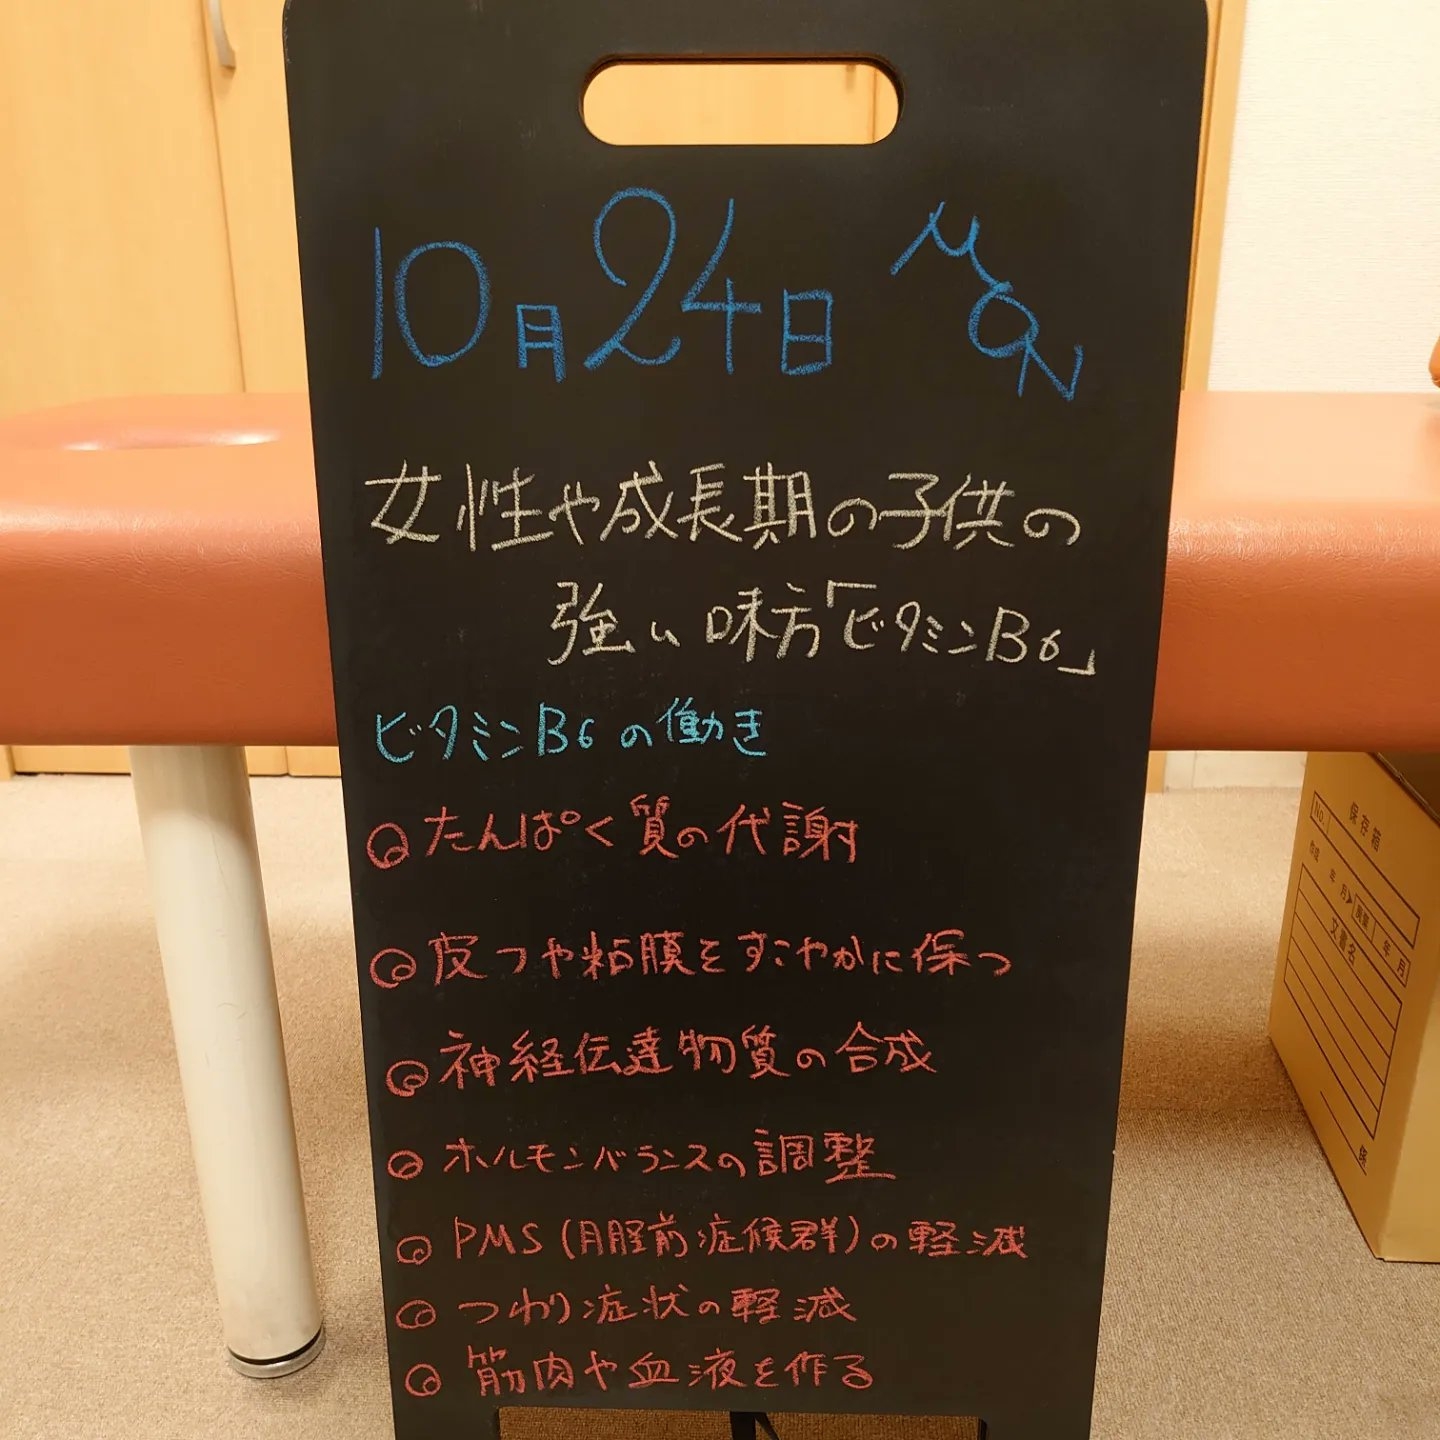 10月24日 MON
女性や成長期の子供の
強い味方「ビタミンB6」
ビタミンB6の働き
◎たんぱく質の代謝
◎皮フや粘膜をすこやかに保つ
◎神経伝達物質の合成
◎ホルモンバランスの調整
◎PMS(月経前症候群)の軽減
◎つわり症状の軽減
◎筋肉や血液を作る
No.
保存箱
作成 年 月 廃棄 年 月
文書名